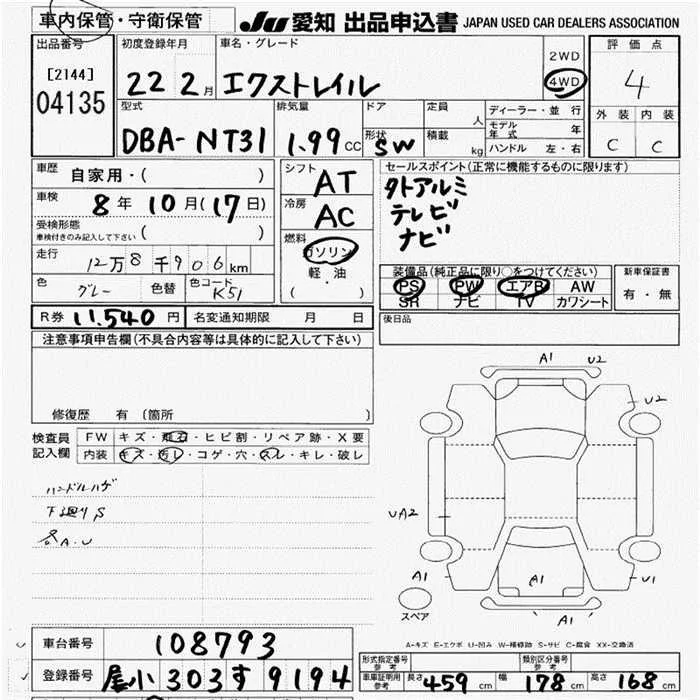 車内保管・守衛保管 JU 愛知 出品申込書 JAPAN USED CAR DEALERS ASSOCIATION
出品番号 [2144] 04135
初度登録年月 22 2月
車名・グレード エクストレイル
2WD
4WD
評価点 4
外装 内装
C C
型式 DBA-NT31
排気量 1.99 CC
ドア
形状 SW
定員 人
積載 kg
ディーラー・並行
モデル年式 年
ハンドル 左・右
車歴 自家用・( )
車検 8年10月(17日)
受検形態
車検付きのみ記入して下さい ( )
走行 12万8千906km
色 グレー 色替 色コード K51
シフト AT
冷房 AC
燃料 ガソリン
軽・油
( )
セールスポイント(正常に機能するものに限ります)
タトアルミ
テレビ
ナビ
装備品(純正品に限り○をつけてください)
PS PW エアB AW
SR ナビ TV カワシート
新車保証書
有・無
R券 11,540円 名変通知期限 月 日
後日品
注意事項申告欄(不具合内容等は具体的に記入して下さい)
修復歴 有 〔箇所 〕
検査員記入欄
FW キズ・飛石・ヒビ割・リペア跡・X要
内装 キズ・汚レ・コゲ・穴・スレ・キレ・破レ
ハンドルハゲ
下廻りS
各A.U
A1 U2
U2
UA2
A1 U1
A1
スペア
A-キズ E-エクボ U-凹み W-補修跡 S-サビ C-腐食 XX-交換済
車台番号 108793
登録番号 尾小 303 す 9194
形式指定番号 参考
類別区分番号 参考
車庫証明用 参考 長さ 459cm 幅 178cm 高さ 168cm